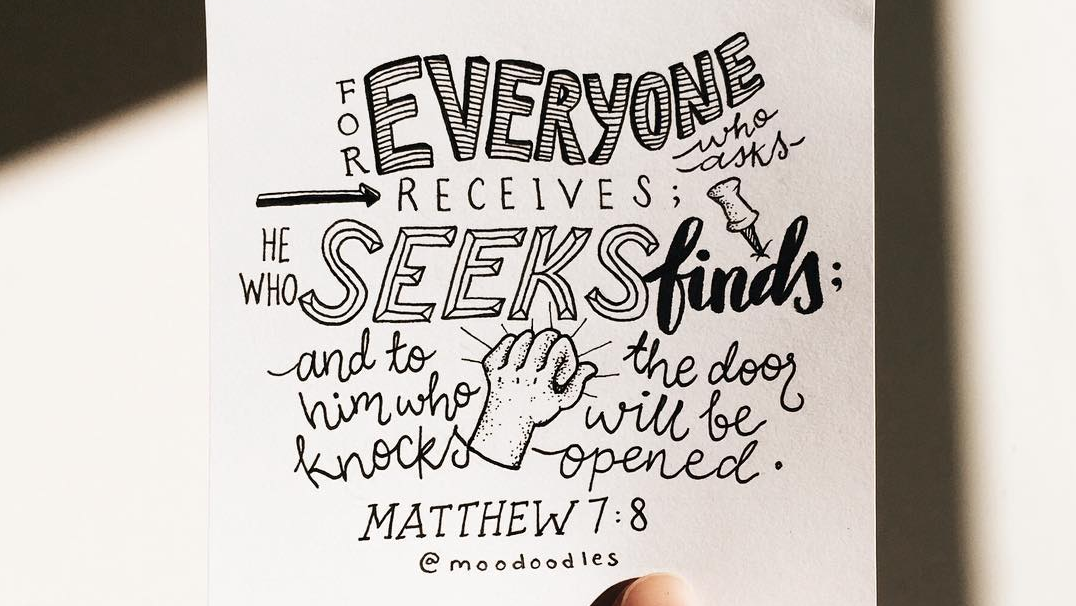 FOR EVERYONE who asks
RECEIVES;
HE WHO SEEKS finds;
and to him who knocks
the door will be opened.
MATTHEW 7:8
@moodoodles